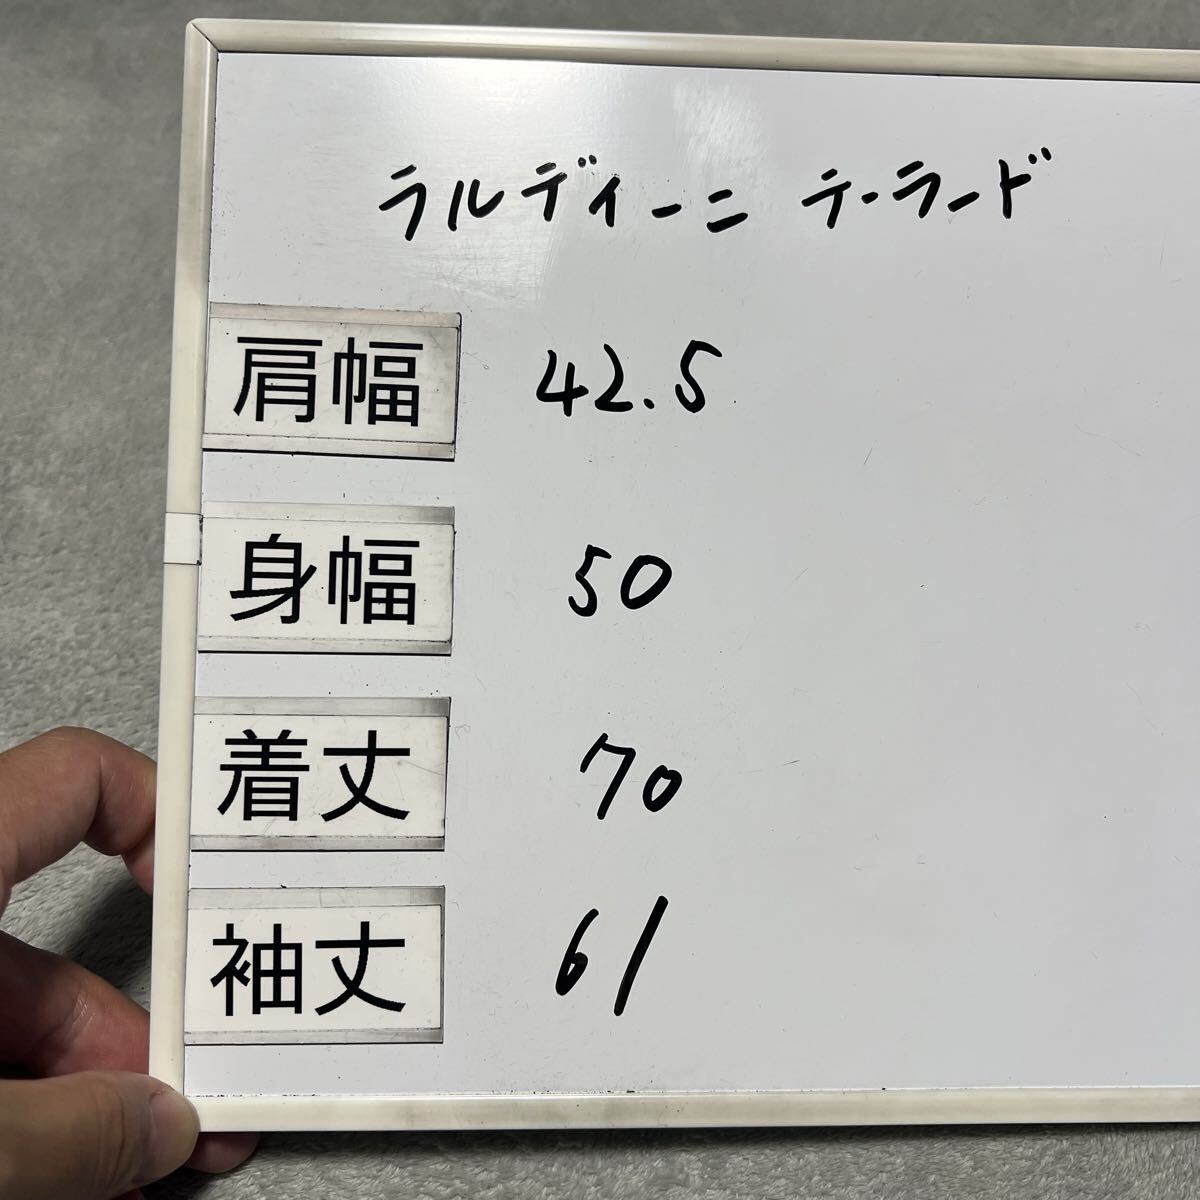 ラルディーニ テーラード
肩幅 42.5
身幅 50
着丈 70
袖丈 61